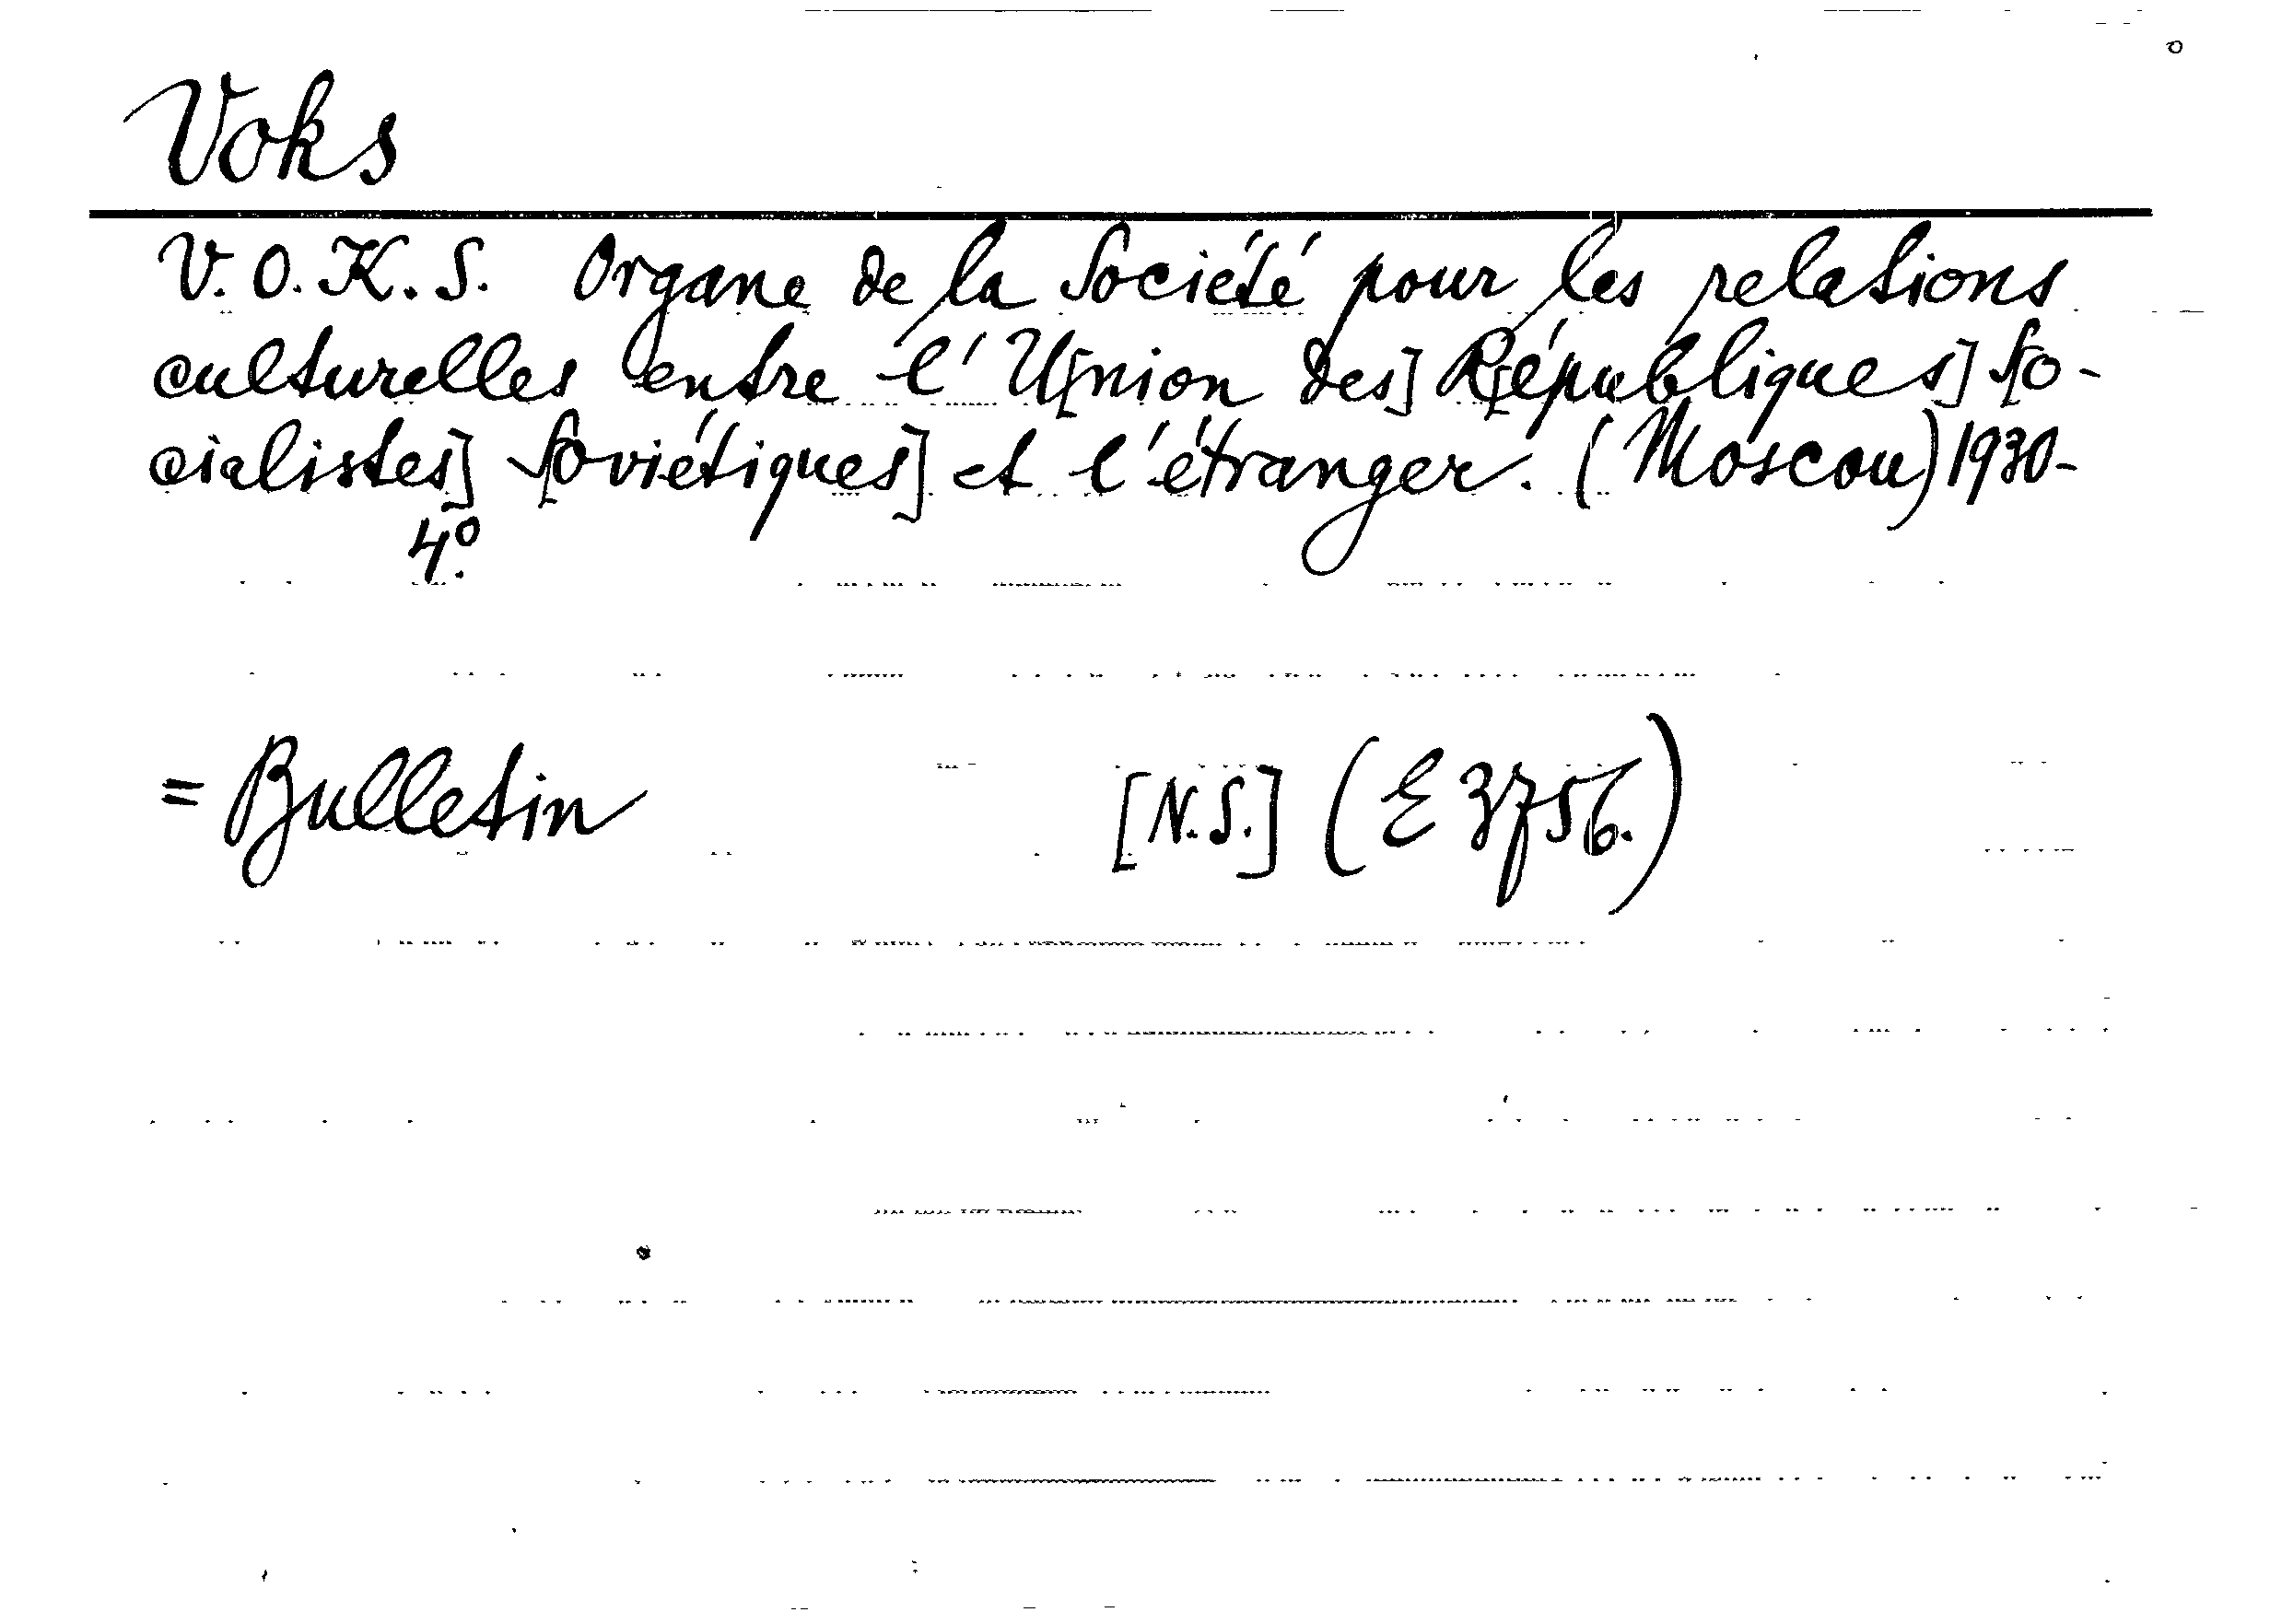 Voks
V.O.K.S. Organe de la Société pour les relations
culturelles entre l'U[nion des] R[épubliques] So-
cialistes] S[oviétiques] et l'étranger. (Moscou) 1930-
4°.
= Bulletin [N.S.] (E 3756.)